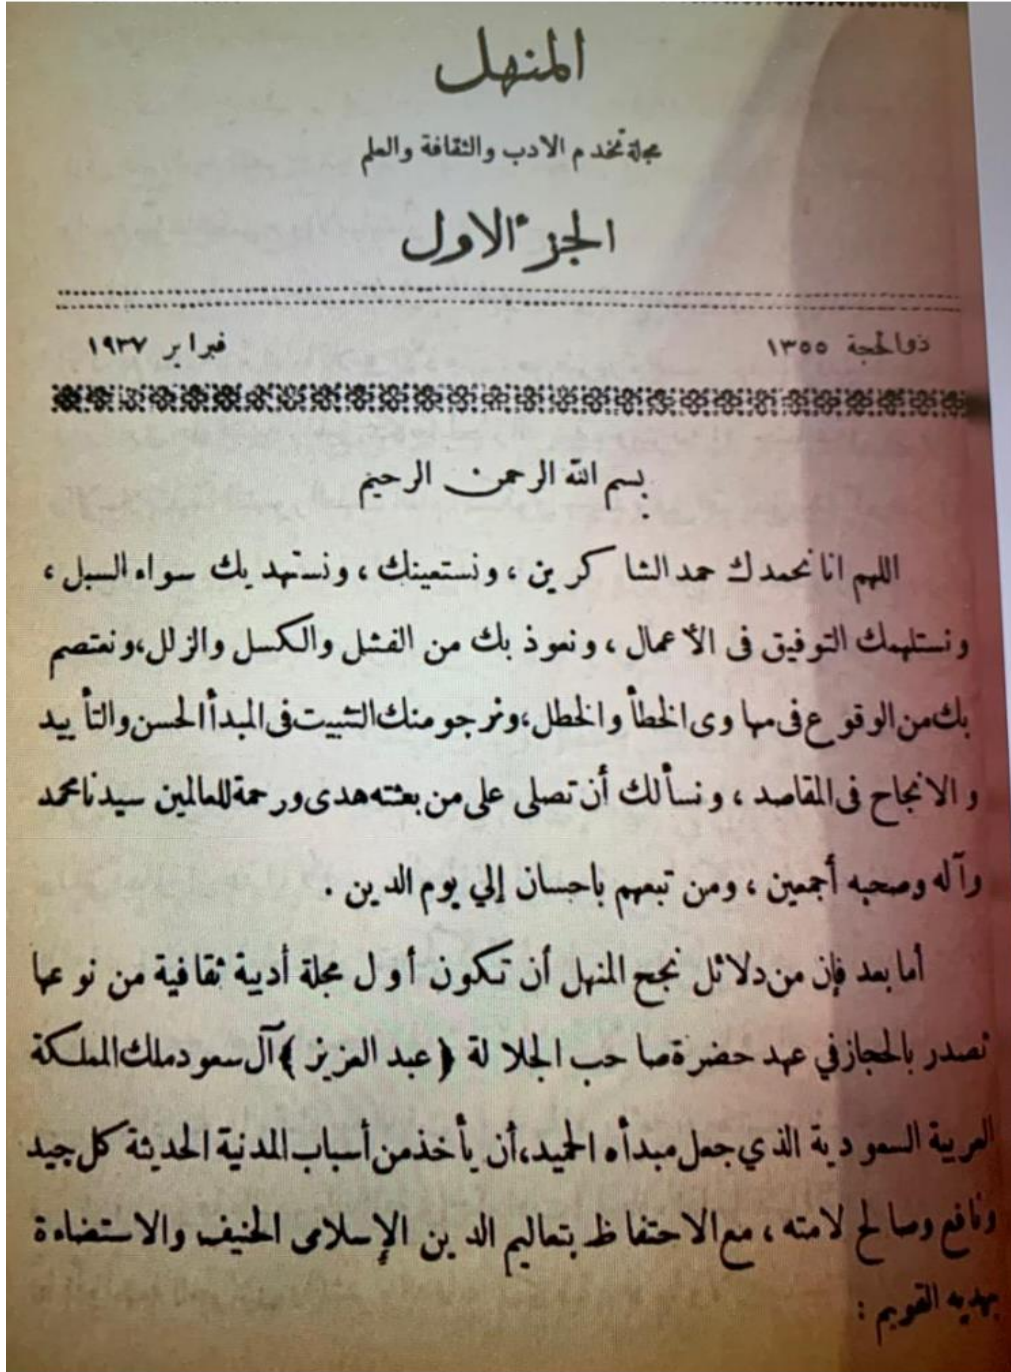 المنهل
مجلة تخدم الادب والثقافة والعلم
الجزء الاول
ذو الحجة ١٣٥٥
فبراير ١٩٣٧
بسم الله الرحمن الرحيم
اللهم انا نحمدك حمد الشاكرين ، ونستعينك ، ونستهديك سواء السبل ،
ونستلهمك التوفيق فى الأعمال ، ونعوذ بك من الفشل والكسل والزلل،ونعتصم
بك من الوقوع فى مهاوى الخطأ والخطل،ونرجو منك التثبيت فى المبدأ الحسن والتأييد
والانجاح فى المقاصد ، ونسألك أن تصلى على من بعثته هدى ورحمة للعالمين سيدنا محمد
وآله وصحبه أجمعين ، ومن تبعهم باحسان إلي يوم الدين .
أما بعد فإن من دلائل نجح المنهل أن تكون أول مجلة أدبية ثقافية من نوعها
تصدر بالحجاز في عهد حضرة صاحب الجلالة (عبد العزيز) آل سعود ملك المملكة
العربية السعودية الذي جعل مبدأه الحميد،أن يأخذ من أسباب المدنية الحديثة كل جيد
ونافع وصالح لامته ، مع الاحتفاظ بتعاليم الدين الإسلامى الحنيف والاستضاءة
بهديه القويم :